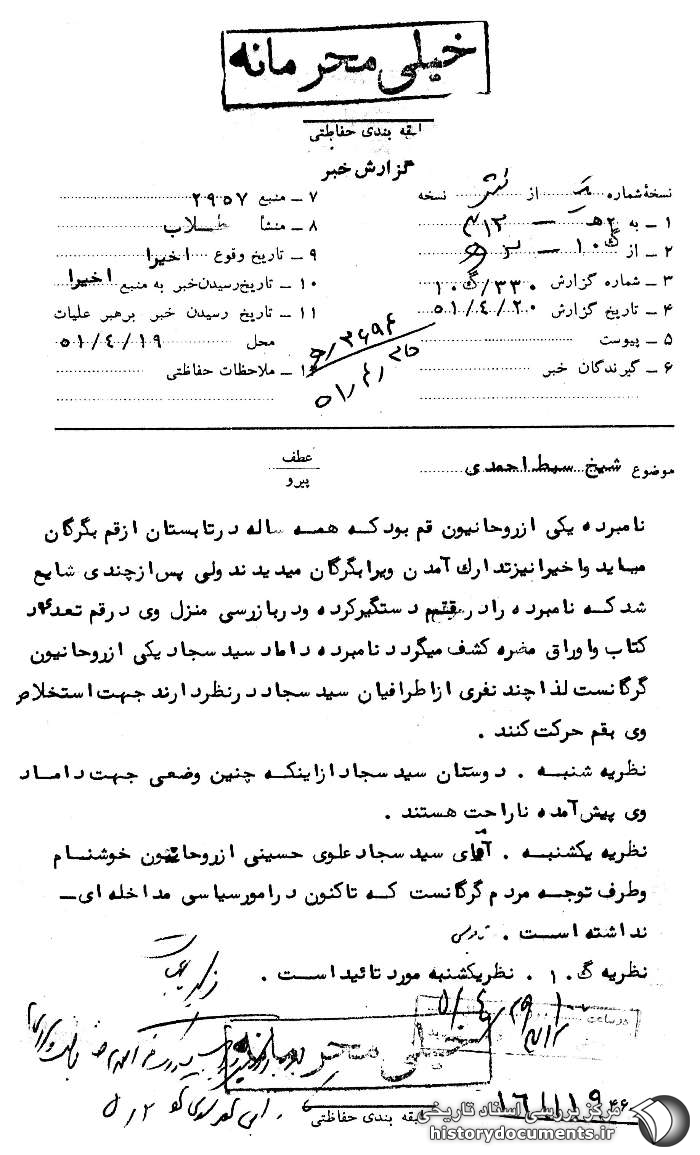 خیلی محرمانه
طبقه بندی حفاظتی
گزارش خبر
نسخهٔ شماره از نسخه
۱ ـ به ۲هـ ـ ۳۱۲
۲ ـ از ۱۰گ ـ
۳ ـ شماره گزارش ۳۳۰/۱۰گ
۴ ـ تاریخ گزارش ۵۱/۴/۲۰
۵ ـ پیوست
۶ ـ گیرندگان خبر
۷ ـ منبع ۲۹۵۷
۸ ـ منشأ طلاب
۹ ـ تاریخ وقوع اخیرا
۱۰ ـ تاریخ رسیدن خبر به منبع اخیرا
۱۱ ـ تاریخ رسیدن خبر برهبر علیات
محل ۵۱/۴/۱۹
۱۲ ـ ملاحظات حفاظتی
۵۱/۴/۲۵
موضوع شیخ سبط احمدی
عطف
پیرو
نامبرده یکی از روحانیون قم بود که همه ساله در تابستان از قم بگرگان
میاید و اخیرا نیز تدارک آمدن ویرا بگرگان میدیدند ولی پس از چندی شایع
شد که نامبرده را در قم دستگیر کرده و در بازرسی منزل وی در قم تعداد
کتاب و اوراق مضره کشف میگردد نامبرده داماد سید سجاد یکی از روحانیون
گرگانست لذا چند نفری از اطرافیان سید سجاد در نظر دارند جهت استخلاص
وی بقم حرکت کنند .
نظریه شنبه . دوستان سید سجاد از اینکه چنین وضعی جهت داماد
وی پیش آمده ناراحت هستند .
نظریه یکشنبه . آقای سید سجاد علوی حسینی از روحانیون خوشنام
و طرف توجه مردم گرگانست که تاکنون در امور سیاسی مداخله ای ـ
نداشته است .
نظریه ۱۰گ . نظر یکشنبه مورد تائید است .
خیلی محرمانه
طبقه بندی حفاظتی
مرکز بررسی اسناد تاریخی
historydocuments.ir